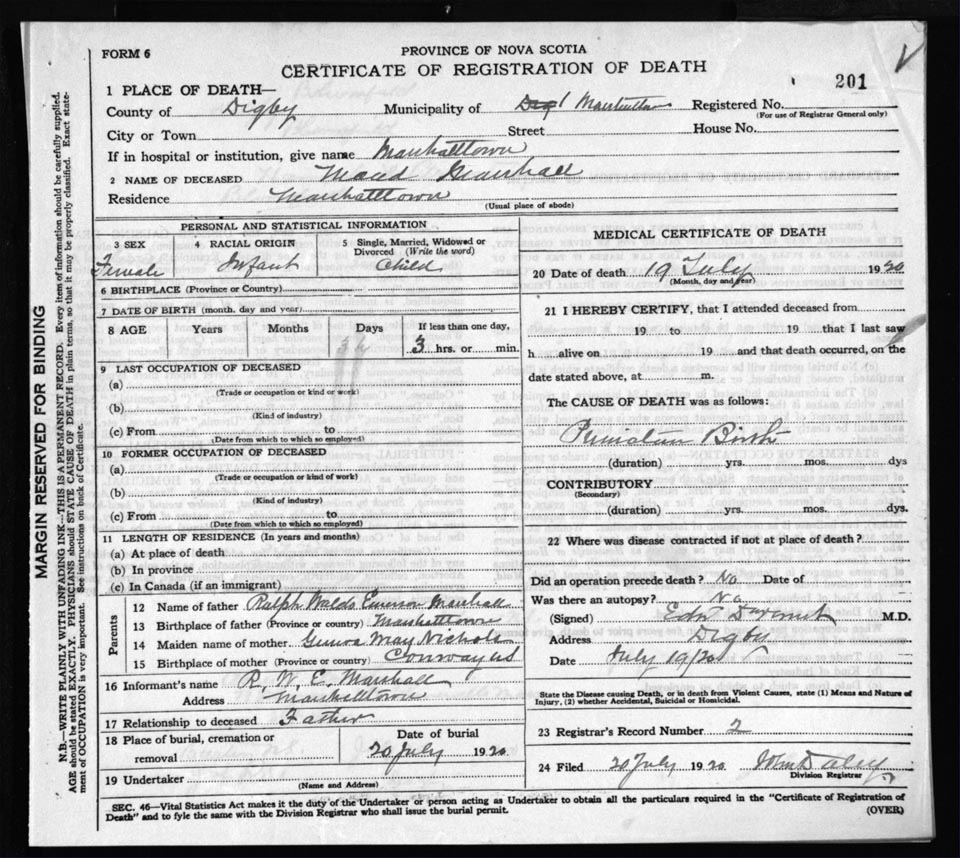 FORM 6
PROVINCE OF NOVA SCOTIA
CERTIFICATE OF REGISTRATION OF DEATH
201
1 PLACE OF DEATH—
County of Digby Municipality of Marshalltown Registered No.
(For use of Registrar General only)
City or Town Street House No.
If in hospital or institution, give name Marshalltown
2 NAME OF DECEASED Maud Marshall
Residence Marshalltown
(Usual place of abode)
PERSONAL AND STATISTICAL INFORMATION
3 SEX 4 RACIAL ORIGIN 5 Single, Married, Widowed or Divorced (Write the word)
Female Infant Child
6 BIRTHPLACE (Province or Country)
7 DATE OF BIRTH (month, day and year)
8 AGE Years Months Days If less than one day,
3 hrs. or min.
9 LAST OCCUPATION OF DECEASED
(a)
(Trade or occupation or kind or work)
(b)
(Kind of industry)
(c) From to
(Date from which to which so employed)
10 FORMER OCCUPATION OF DECEASED
(a)
(Trade or occupation or kind of work)
(b)
(Kind of industry)
(c) From to
(Date from which to which so employed)
11 LENGTH OF RESIDENCE (In years and months)
(a) At place of death
(b) In province
(c) In Canada (if an immigrant)
Parents
12 Name of father Ralph Waldo Emerson Marshall
13 Birthplace of father (Province or country) Marshalltown
14 Maiden name of mother May Nichols
15 Birthplace of mother (Province or country) Conway NS
16 Informant's name R. W. E. Marshall
Address Marshalltown
17 Relationship to deceased Father
18 Place of burial, cremation or removal
Date of burial
20 July 1920
19 Undertaker
(Name and Address)
MEDICAL CERTIFICATE OF DEATH
20 Date of death 19 July 1920
(Month, day and year)
21 I HEREBY CERTIFY, that I attended deceased from
19 to 19 that I last saw
h alive on 19 and that death occurred, on the
date stated above, at m.
The CAUSE OF DEATH was as follows:
Birth
(duration) yrs. mos. dys
CONTRIBUTORY
(Secondary)
(duration) yrs. mos. dys.
22 Where was disease contracted if not at place of death?
Did an operation precede death? No Date of
Was there an autopsy? No
(Signed) M.D.
Address Digby
Date July 19/20
State the Disease causing Death, or in death from Violent Causes, state (1) Means and Nature of
Injury, (2) whether Accidental, Suicidal or Homicidal.
23 Registrar's Record Number 2
24 Filed 20 July 1920
Division Registrar
SEC. 46—Vital Statistics Act makes it the duty of the Undertaker or person acting as Undertaker to obtain all the particulars required in the "Certificate of Registration of
Death" and to fyle the same with the Division Registrar who shall issue the burial permit.
(OVER)
MARGIN RESERVED FOR BINDING
N.B.—WRITE PLAINLY WITH UNFADING INK—THIS IS A PERMANENT RECORD. Every item of information should be carefully supplied.
AGE should be stated EXACTLY. PHYSICIANS should STATE CAUSE OF DEATH in plain terms, so that it may be properly classified. Exact state-
ment of OCCUPATION is very important. See instructions on back of Certificate.